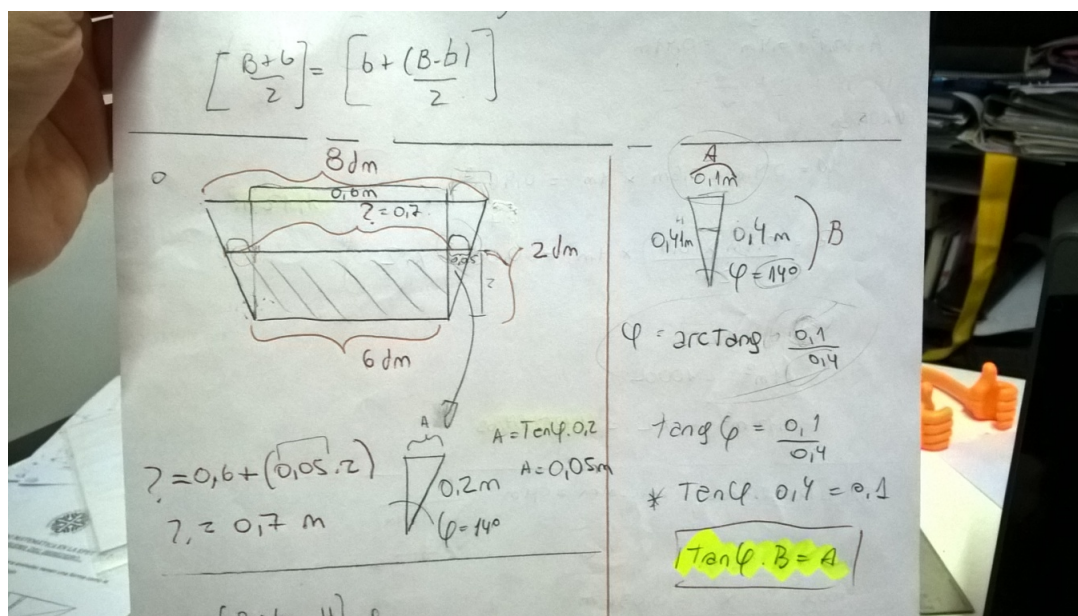 [B+b/2] = [b+(B-b)/2]
8 dm
0,6m
? = 0,7
0,05
2
2 dm
6 dm
A
A = Tanφ.0,2
A = 0,05m
0,2m
φ = 14º
? = 0,6 + (0,05.2)
? = 0,7 m
A
0,1m
0,41m
0,4m
B
φ = 14º
φ = arcTang 0,1/0,4
tang φ = 0,1/0,4
* Tanφ. 0,4 = 0,1
Tanφ. B = A